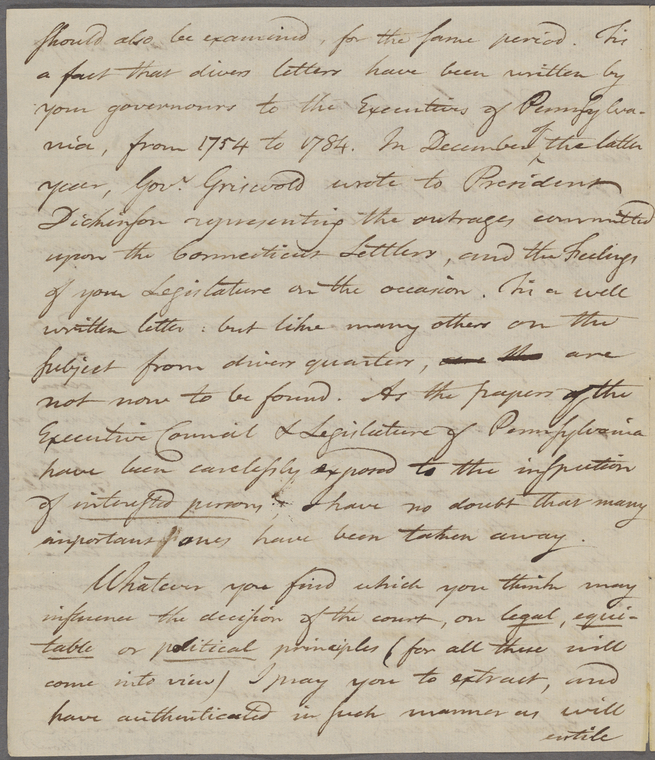 should also be examined, for the same period. Tis
a fact that divers letters have been written by
your governours to the Executives of Pennsylva-
nia, from 1754 to 1784. In December of the latter
year, Govr. Griswold wrote to President
Dickinson representing the outrages committed
upon the Connecticut Settlers, and the feelings
of your Legislature on the occasion. Tis a well
written letter: but like many others on the
subject from divers quarters, are the are
not now to be found. As the papers of the
Executive Council & Legislature of Pennsylvania
have been carelessly exposed to the inspection
of interested persons I have no doubt that many
important ones have been taken away.
Whatever you find which you think may
influence the decision of the court, on legal, equi-
table or political principles (for all these will
come into view) I pray you to extract, and
have authenticated in such manner as will
entitle